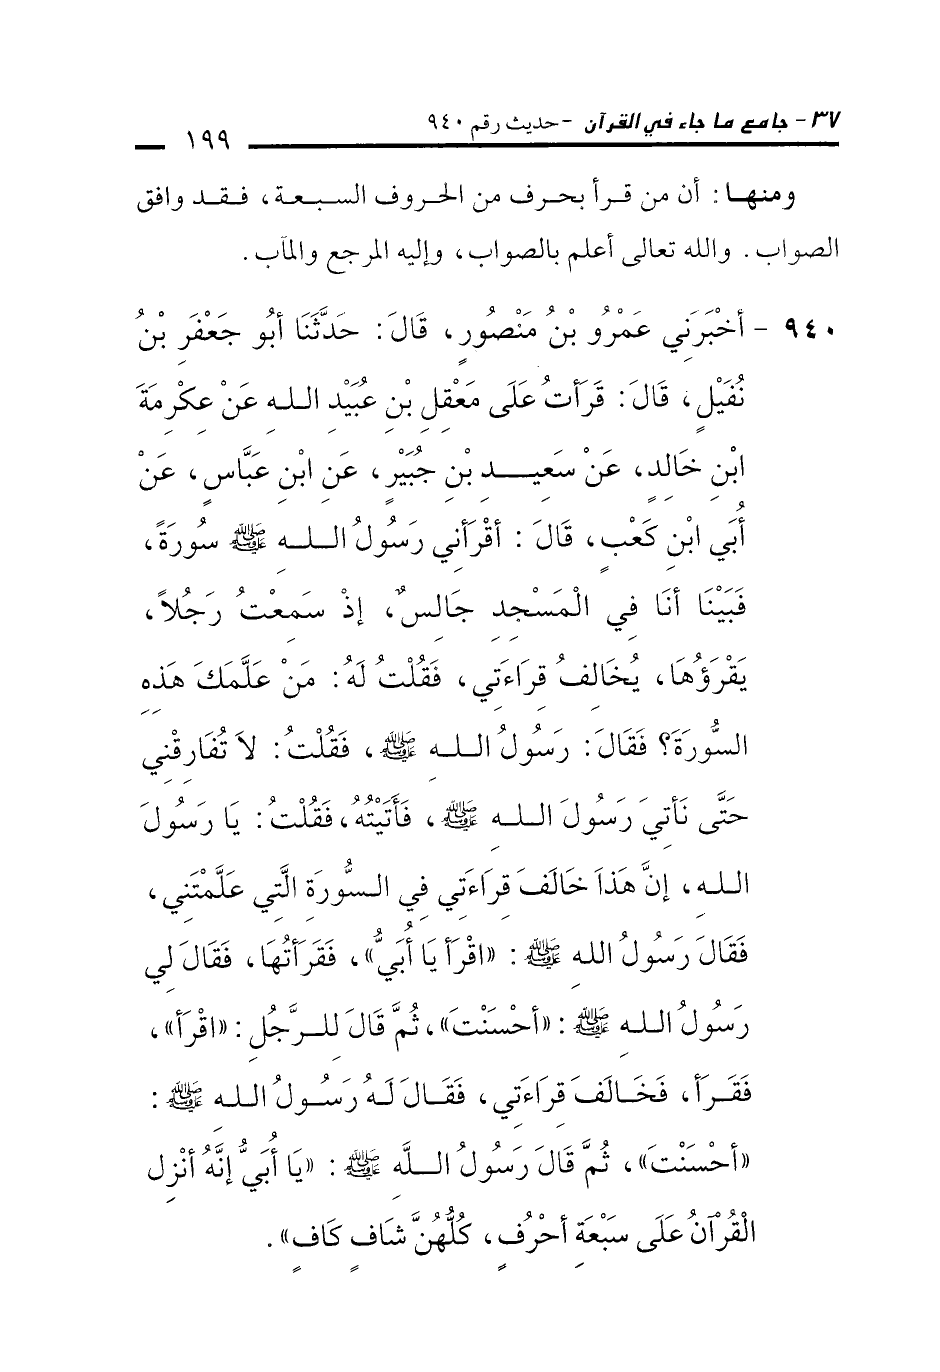 ٣٧ - جامع ما جاء في القرآن - حديث رقم ٩٤٠
١٩٩
ومنهـا: أن من قـرأ بحـرف من الحروف السـبعـة، فـقـد وافق
الصواب. والله تعالى أعلم بالصواب، وإليه المرجع والمآب.
٩٤٠ - أَخْبَرَنِي عَمْرُو بْنُ مَنْصُورٍ، قَالَ: حَدَّثَنَا أَبُو جَعْفَرِ بْنُ
نُفَيْلٍ، قَالَ: قَرَأتُ عَلَى مَعْقِلِ بْنِ عُبَيْدِ اللـهِ عَنْ عِكْرِمَةَ
ابْنِ خَالِدٍ، عَنْ سَعِيـــدِ بْنِ جُبَيْرٍ، عَنِ ابْنِ عَبَّاسٍ، عَنْ
أُبَيِ ابْنِ كَعْبٍ، قَالَ: أقْرَأنِي رَسُولُ اللـهِ ﷺ سُورَةً،
فَبَيْنَا أنَا فِي الْمَسْجِدِ جَالِسٌ، إِذْ سَمِعْتُ رَجُلاً،
يَقْرَؤُهَا، يُخَالِفُ قِرَاءَتِي، فَقُلْتُ لَهُ: مَنْ عَلَّمَكَ هَذِهِ
السُّورَةَ؟ فَقَالَ: رَسُولُ اللـهِ ﷺ، فَقُلْتُ: لاَ تُفَارِقْنِي
حَتَّى نَأتِيَ رَسُولَ اللـهِ ﷺ، فَأتَيْتُهُ، فَقُلْتُ: يَا رَسُولَ
اللـهِ، إِنَّ هَذَا خَالَفَ قِرَاءَتِي فِي السُّورَةِ الَّتِي عَلَّمْتَنِي،
فَقَالَ رَسُولُ اللهِ ﷺ: «اقْرَأ يَا أُبَيُّ»، فَقَرَأتُهَا، فَقَالَ لِي
رَسُولُ اللـهِ ﷺ: «أحْسَنْتَ»، ثُمَّ قَالَ لِلـرَّجُلِ: «اقْرَأ»،
فَقَـرَأ، فَخَـالَفَ قِرَاءَتِي، فَقَـالَ لَـهُ رَسُـولُ اللـهِ ﷺ:
«أحْسَنْتَ»، ثُمَّ قَالَ رَسُولُ اللَّهِ ﷺ: «يَا أُبَيُّ إِنَّهُ أُنْزِلَ
الْقُرْآنُ عَلَى سَبْعَةِ أحْرُفٍ، كُلُّهُنَّ شَافٍ كَافٍ».